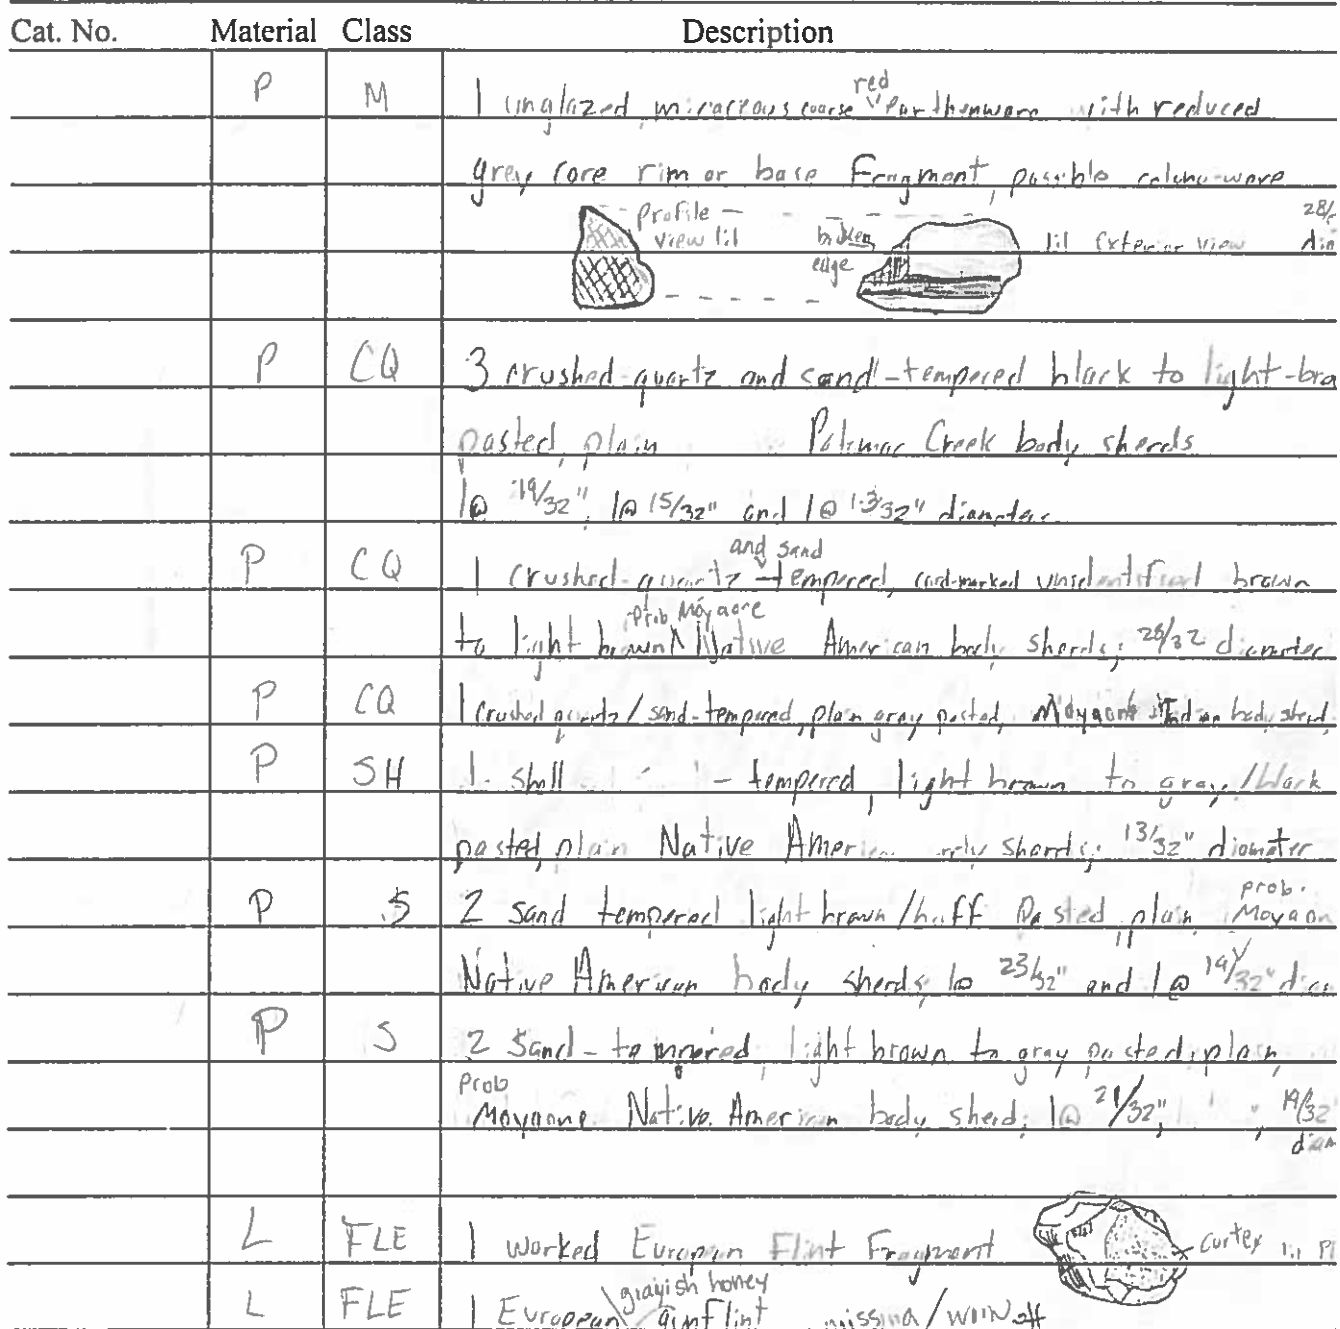 Cat. No. Material Class Description
P M 1 unglazed, micaceous coarse red earthenware with reduced
grey core rim or base Fragment, possible colono-ware
profile view 1:1 broken edge 1:1 Exterior view 28/ dia
P CQ 3 crushed-quartz and sand-tempered black to light-bro
pasted, plain Potomac Creek body sherds
1@ 19/32", 1@ 15/32" and 1@ 13/32" diameter
P CQ 1 crushed-quartz and sand -tempered, cord-marked unidentified brown
to light brown prob Moyaone Native American body sherds; 26/32 diameter
P CQ 1 crushed quartz/sand-tempered, plain gray pasted, Moyaone Indian body sherd
P SH 1 shell -tempered, light brown to gray/black
pasted, plain Native American sherds; 13/32" diameter
P S 2 sand tempered light brown/buff pasted, plain, prob. Moyaon
Native American body sherds; 1@ 23/32" and 1@ 19/32" diam
P S 2 Sand-tempered, light brown to gray pasted, plain,
prob Moyaone Native American body sherd; 1@ 21/32", 19/32" diam
L FLE 1 worked European Flint Fragment cortex 1:1 Pl
L FLE 1 European grayish honey gunflint missing/worn off